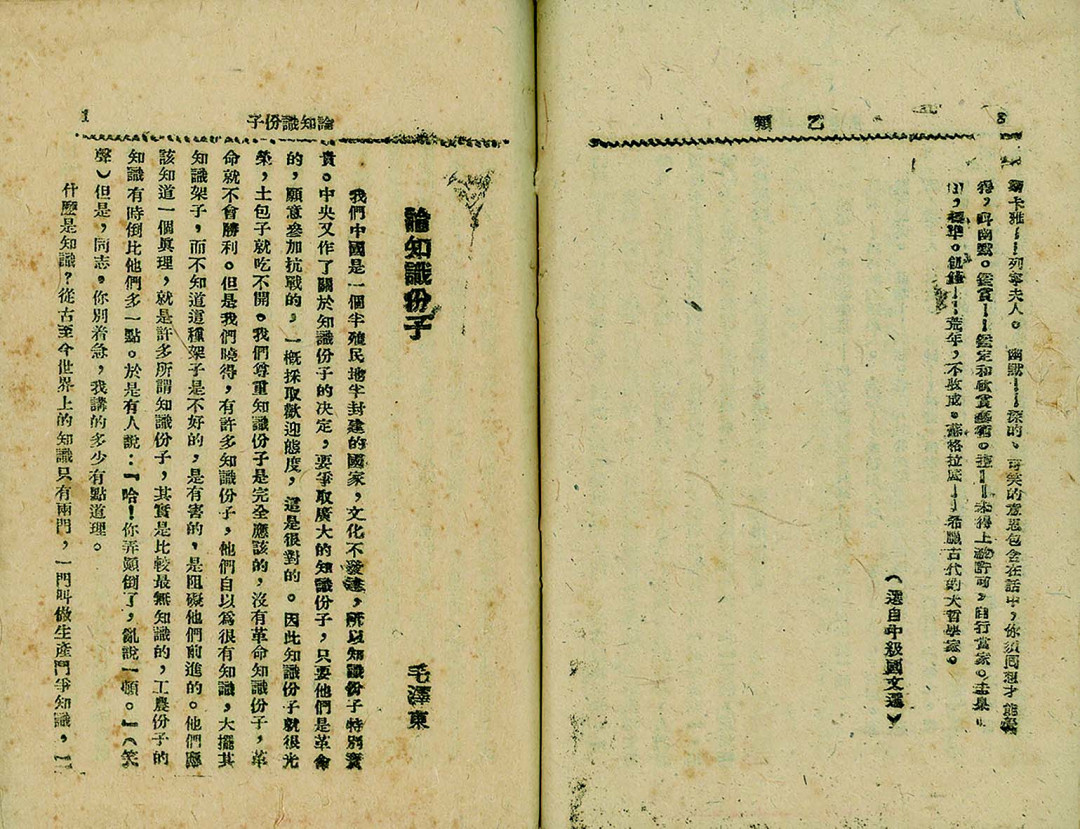 乙類
爾卡雅——列寧夫人。幽默——深的、可笑的意思包含在話中,你須回想才能覺
得,叫幽默。鑑賞——鑑定和欣賞藝術。
標準。饑饉——荒年,不收成。蘇格拉底——希臘古代的大哲學家。
(選自中級國文選)
論知識份子
1
論知識份子
毛澤東
我們中國是一個半殖民地半封建的國家,文化不發達,所以知識份子特別寶
貴。中央又作了關於知識份子的決定,要爭取廣大的知識份子,只要他們是革命
的,願意參加抗戰的,一概採取歡迎態度,這是很對的。因此知識份子就很光
榮,土包子就吃不開。我們尊重知識份子是完全應該的,沒有革命知識份子,革
命就不會勝利。但是我們曉得,有許多知識份子,他們自以爲很有知識,大擺其
知識架子,而不知道這種架子是不好的,是有害的,是阻礙他們前進的。他們應
該知道一個眞理,就是許多所謂知識份子,其實是比較最無知識的,工農份子的
知識有時倒比他們多一點。於是有人說:『哈!你弄顚倒了,亂說一頓。』(笑
聲)但是,同志,你別着急,我講的多少有點道理。
什麼是知識?從古至今世界上的知識只有兩門,一門叫做生產鬥爭知識,一